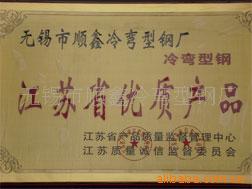 无锡市顺鑫冷弯型钢厂
冷弯型钢
江苏省优质产品
江苏省产品质量监督管理中心
江苏质量诚信监督委员会